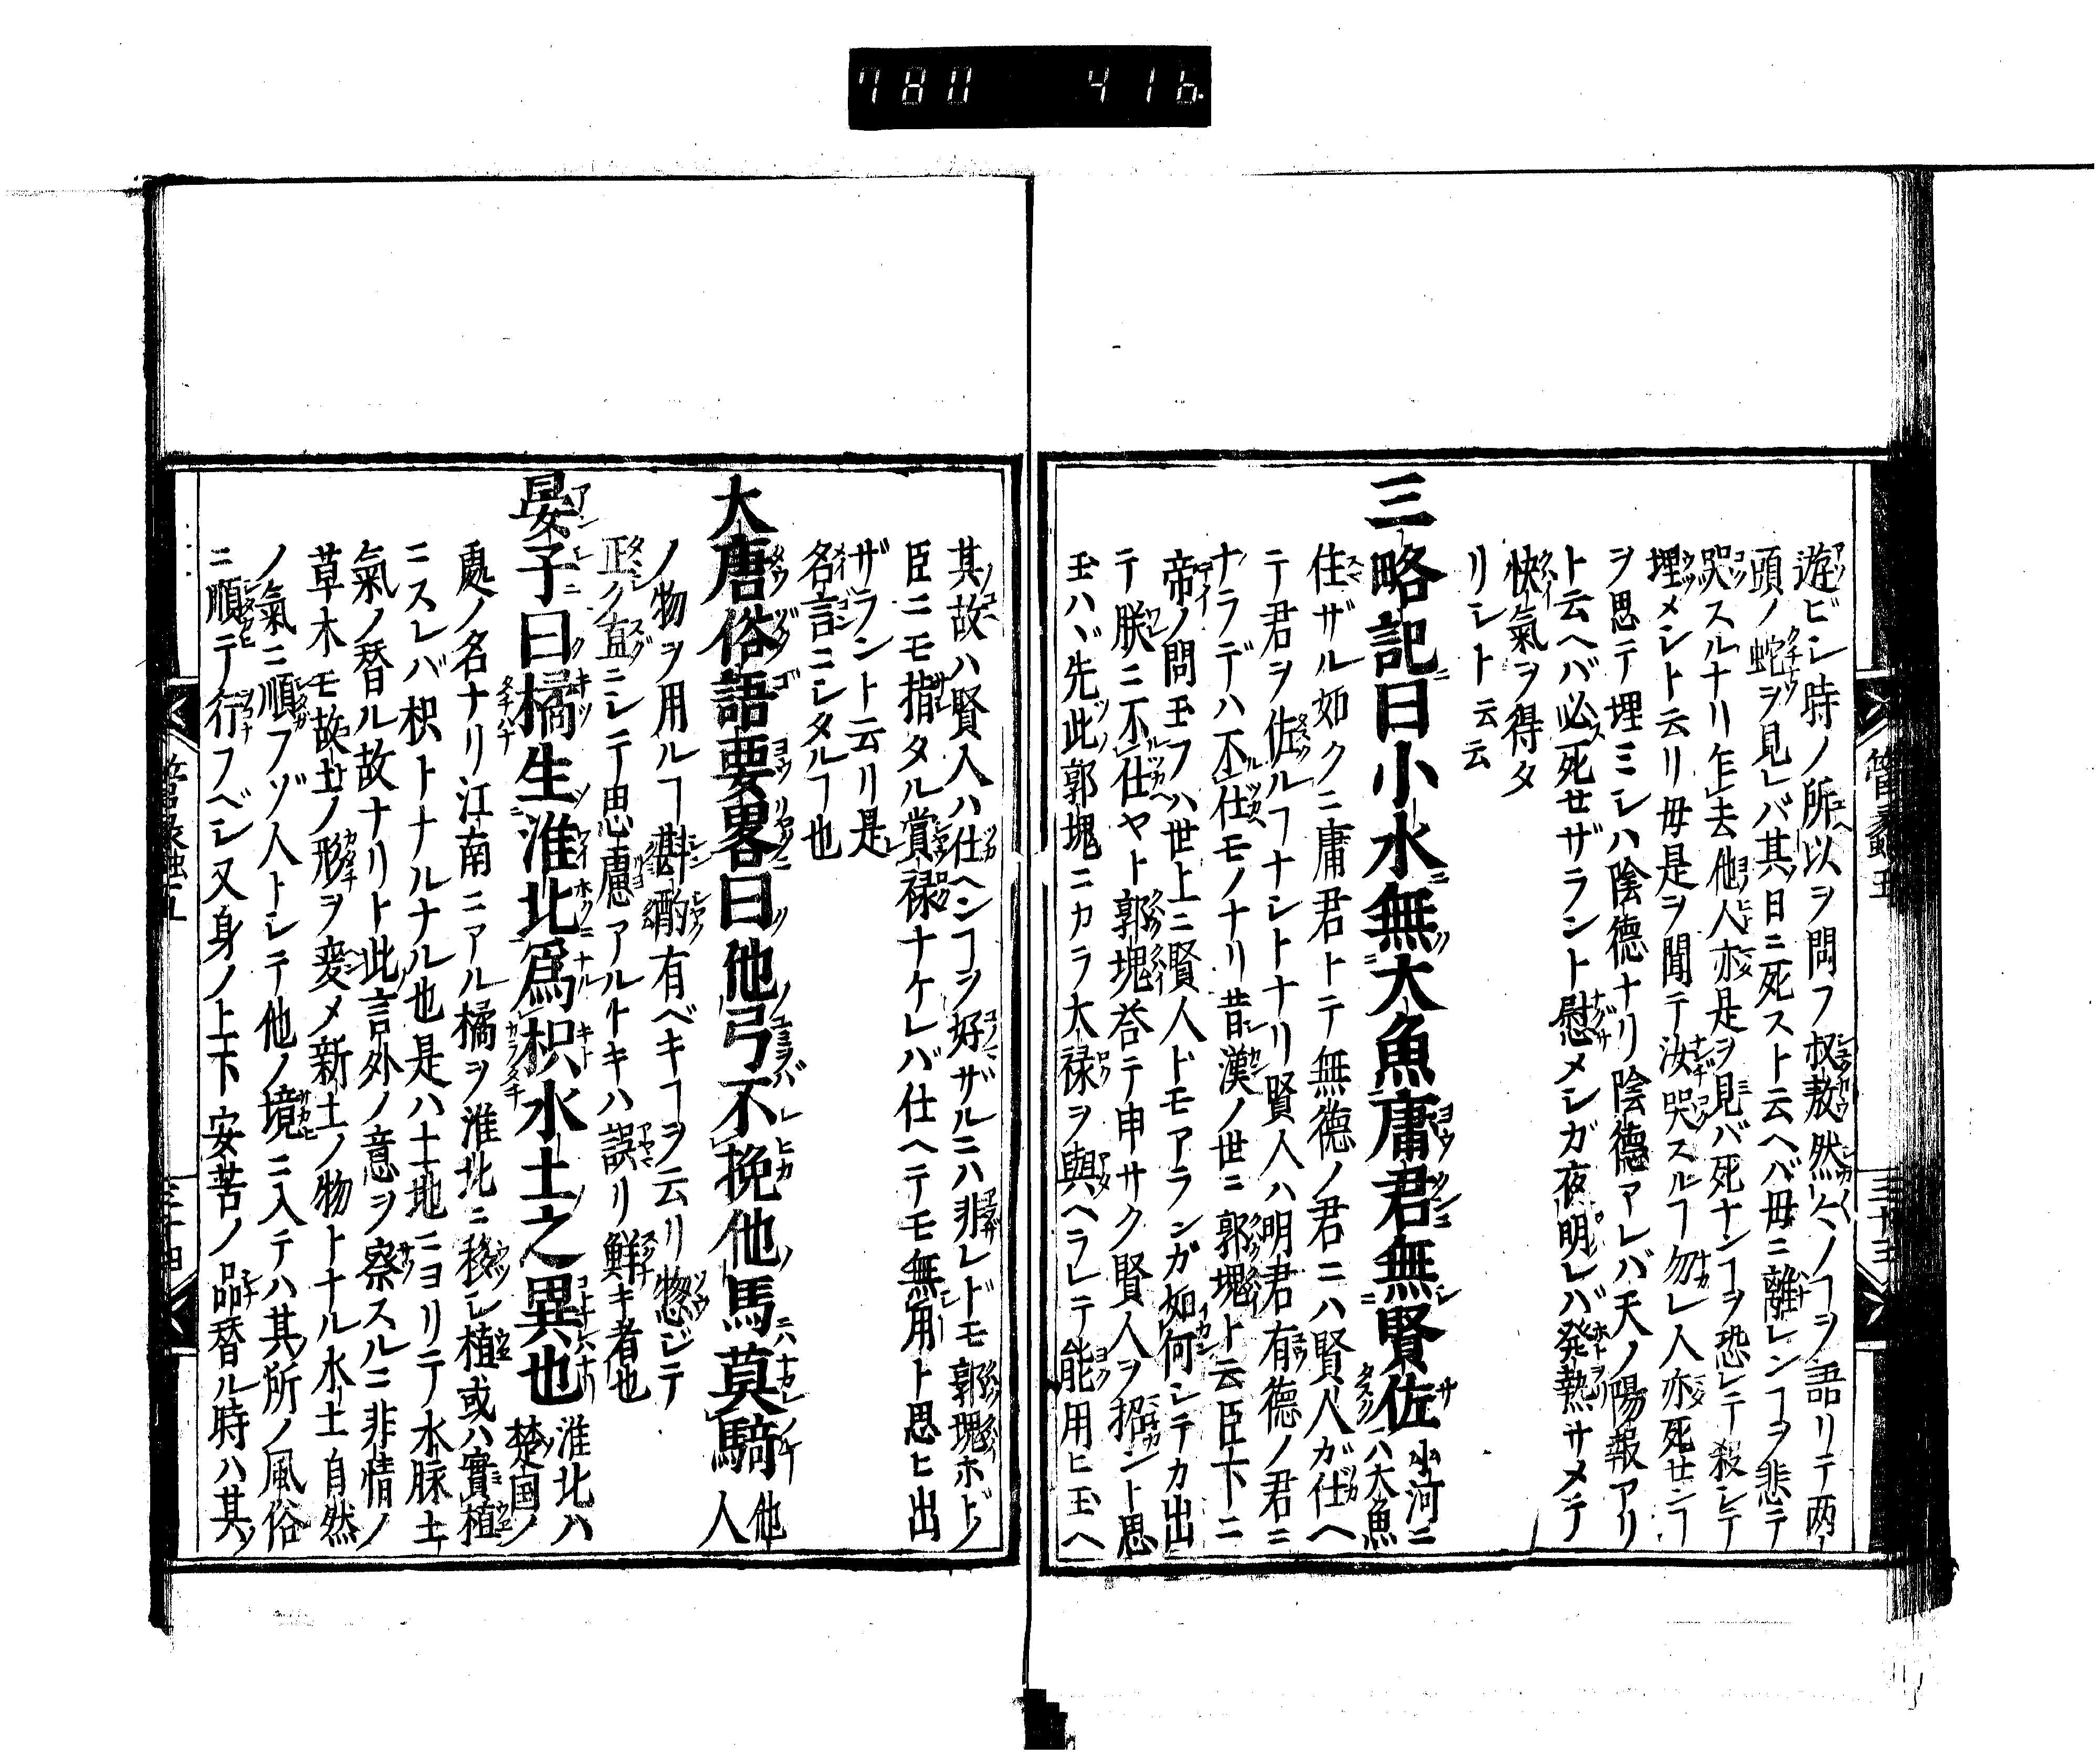 780 416
遊ビシ時ノ所以ヲ問フ叔敖然〻ノヿヲ語リテ两
頭ノ蛇ヲ見レバ其日ニ死スト云ヘバ母ニ離レンヿヲ悲テ
哭スルナリ乍去他人亦是ヲ見バ死ナンヿヲ恐レテ殺シテ
埋メシト云リ母是ヲ聞テ汝哭スルヿ勿レ人亦死せンヿ
ヲ思テ埋ミシハ陰德ナリ陰德アレバ天ノ陽報アリ
ト云ヘバ必死せザラント慰メシガ夜明レバ発熱サメテ
快氣ヲ得タ
リシト云云
三略記曰小水無大魚庸君無賢佐
小河ニ
ハ大魚
住ザル如クニ庸君トテ無德ノ君ニハ賢人ガ仕ヘ
テ君ヲ佐ルヿナシトナリ賢人ハ明君有德ノ君ニ
ナラデハ不仕モノナリ昔漢ノ世ニ郭塊ト云臣下ニ
帝ノ問玉フハ世上ニ賢人ドモアランガ如何シテカ出
テ朕ニ不仕ヤト郭塊荅テ申サク賢人ヲ招ント思
玉ハヾ先此郭塊ニカラ太禄ヲ與ヘラレテ能用ヒ玉ヘ
三十三
其故ハ賢人ハ仕ヘンヿヲ好ザルニハ非レドモ郭塊ホドノ
臣ニモ指タル賞禄ナケレバ仕ヘテモ無用ト思ヒ出
ザラント云リ是
名言ニシタルヿ也
大唐俗語要畧曰他弓不挽他馬莫騎
他
人
ノ物ヲ用ルヿ斟酌有ベキヿヲ云リ惣ジテ
正ク直ニシテ思慮アルトキハ誤リ鮮キ者也
晏子曰橘生淮北爲枳水土之異也
淮北ハ
楚国ノ
處ノ名ナリ江南ニアル橘ヲ淮北ニ移シ植或ハ實植
ニスレバ枳トナルナル也是ハ土地ニヨリテ水脉土
氣ノ替ル故ナリト此言外ノ意ヲ察スルニ非情ノ
草木モ故土ノ形ヲ変メ新土ノ物トナル水土自然
ノ氣ニ順フゾ人トシテ他ノ境ニ入テハ其所ノ風俗
ニ順テ行フベシ又身ノ上下安苦ノ品替ル時ハ其